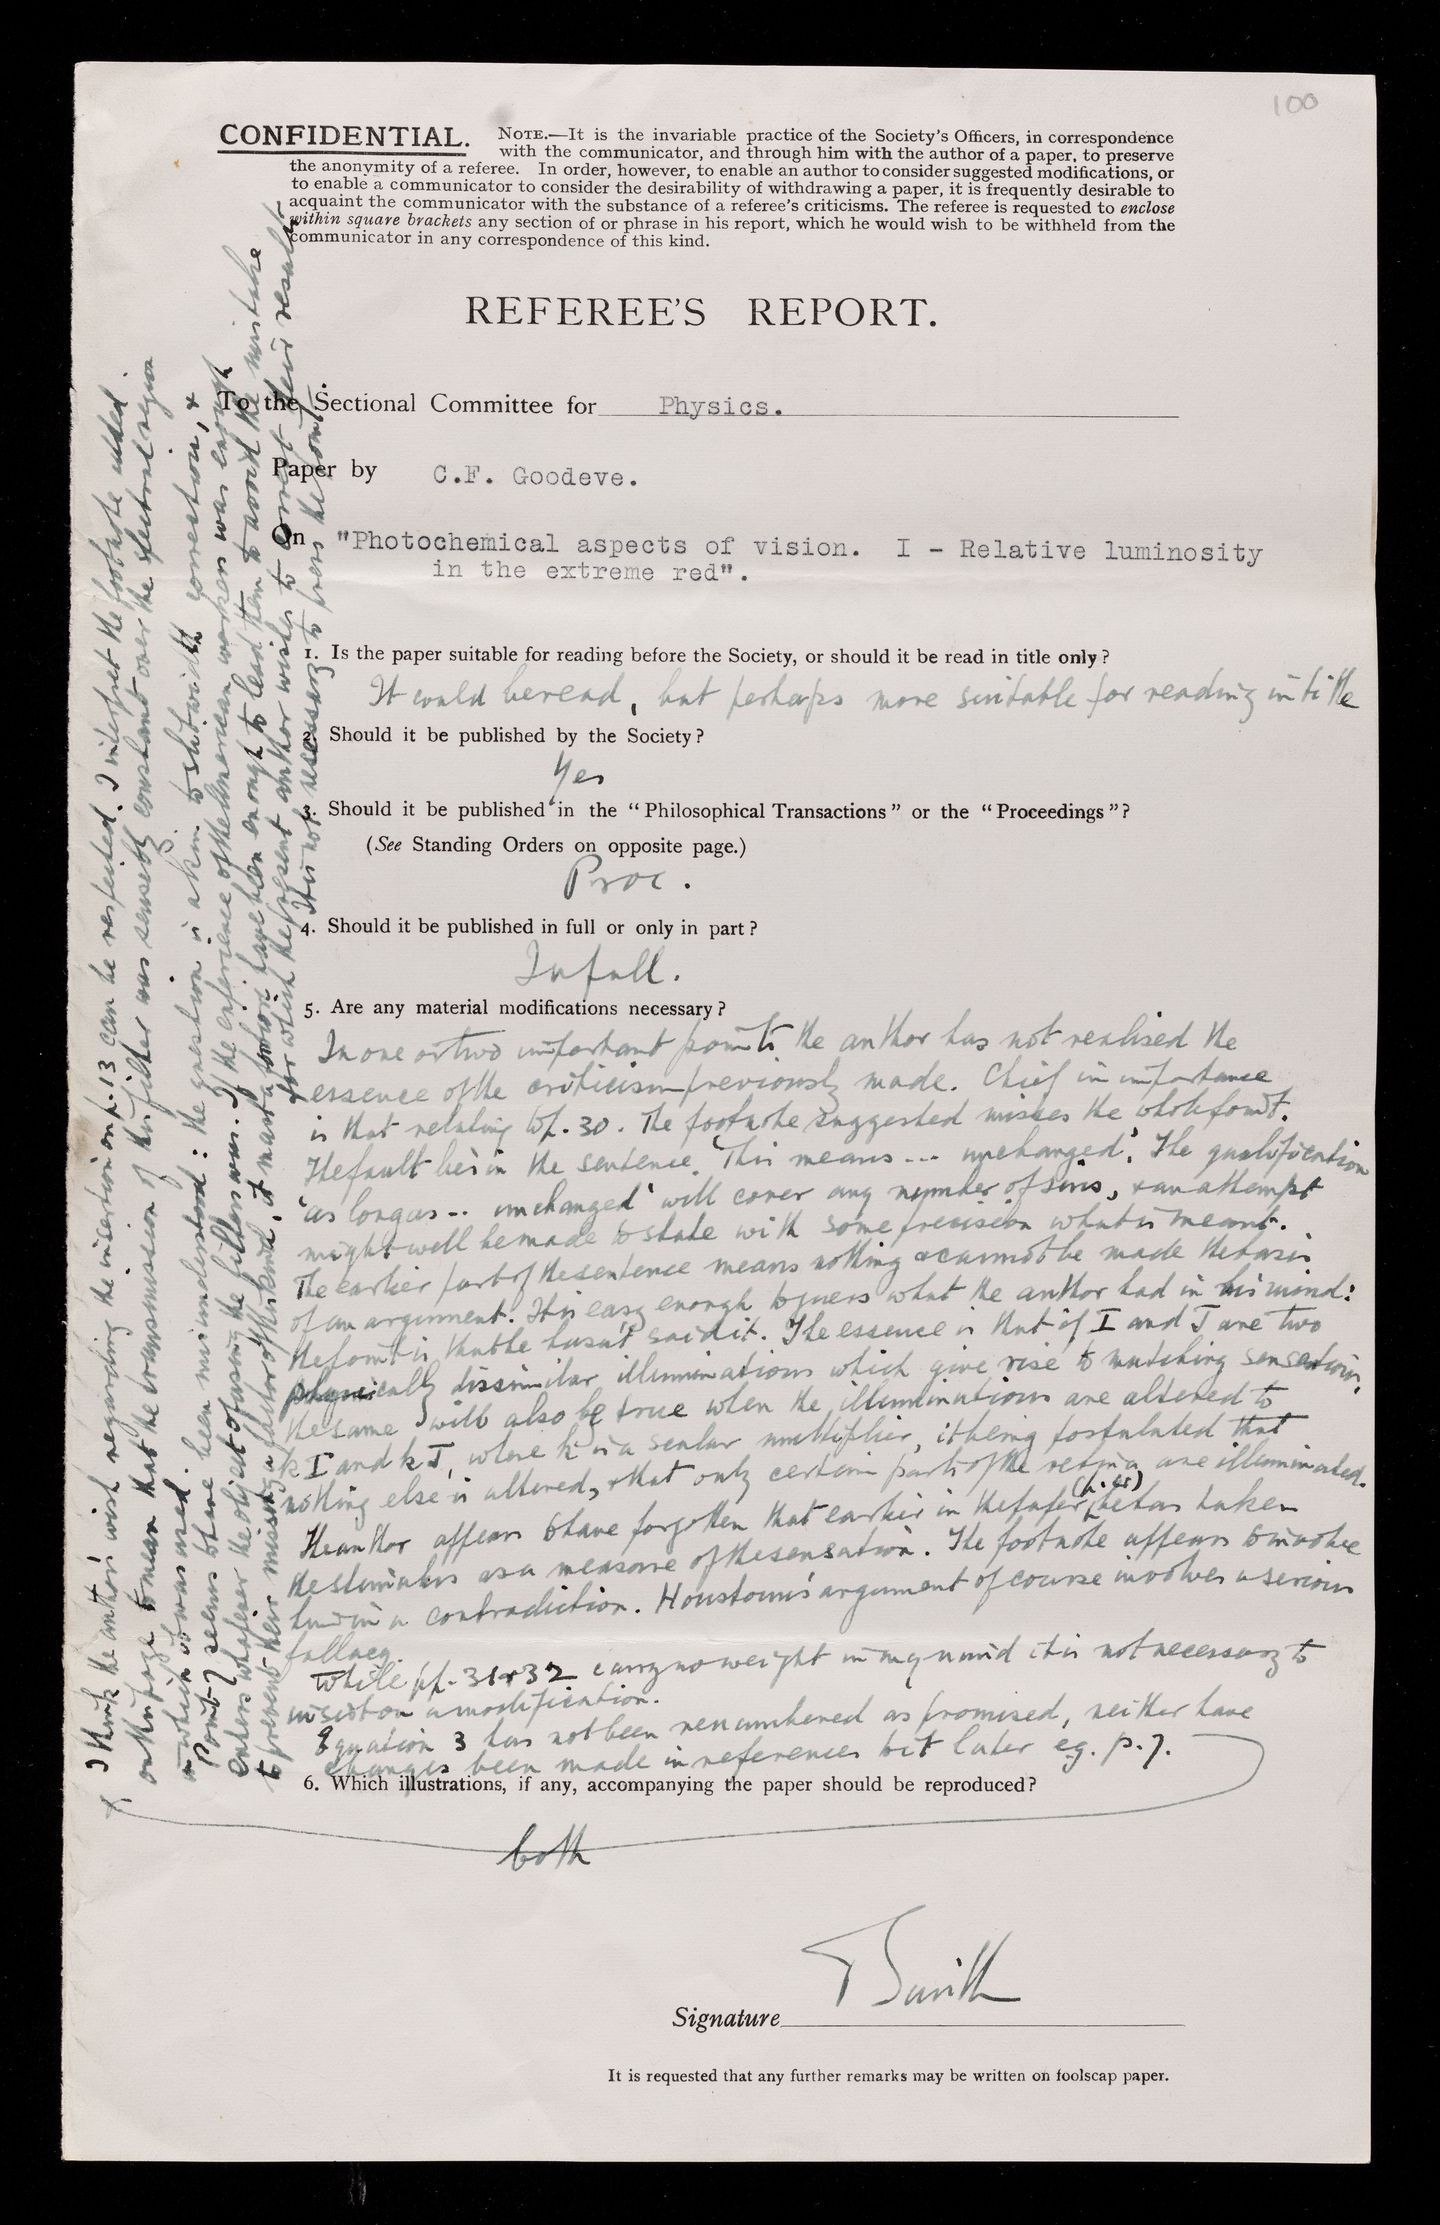 100
CONFIDENTIAL. NOTE.—It is the invariable practice of the Society's Officers, in correspondence
with the communicator, and through him with the author of a paper, to preserve
the anonymity of a referee. In order, however, to enable an author to consider suggested modifications, or
to enable a communicator to consider the desirability of withdrawing a paper, it is frequently desirable to
acquaint the communicator with the substance of a referee's criticisms. The referee is requested to enclose
within square brackets any section of or phrase in his report, which he would wish to be withheld from the
communicator in any correspondence of this kind.
REFEREE'S REPORT.
To the Sectional Committee for Physics.
Paper by C.F. Goodeve.
On "Photochemical aspects of vision. I - Relative luminosity
in the extreme red".
1. Is the paper suitable for reading before the Society, or should it be read in title only?
It could be read, but perhaps more suitable for reading in title
2. Should it be published by the Society?
Yes
3. Should it be published in the "Philosophical Transactions" or the "Proceedings"?
(See Standing Orders on opposite page.)
Proc.
4. Should it be published in full or only in part?
In full.
5. Are any material modifications necessary?
In one or two important points the author has not realised the
essence of the criticism previously made. Chief in importance
is that relating to p. 30. The footnote suggested misses the whole point.
The fault lies in the sentence 'This means --- unchanged'. The qualification
'as long as -- unchanged' will cover any number of sins, & an attempt
might well be made to state with some precision what is meant.
The earlier part of the sentence means nothing & cannot be made the basis
of an argument. It is easy enough to guess what the author had in his mind:
the point is that he hasn't said it. The essence is that if I and J are two
physically dissimilar illuminations which give rise to matching sensations,
the same will also be true when the illuminations are altered to
k I and k J, where k is a scalar multiplier, it being postulated that
nothing else is altered, & that only certain parts of the retina are illuminated.
The author appears to have forgotten that earlier in the paper he has taken
the stimulus as a measure of the sensation. The footnote appears to involve
him in a contradiction. Houstoun's argument of course involves a serious
fallacy.
While pp. 31 & 32 carry no weight in my mind it is not necessary to
insist on a modification.
Equation 3 has not been renumbered as promised, neither have
changes been made in references to it later e.g. p. 7.
6. Which illustrations, if any, accompanying the paper should be reproduced?
both
Signature T Smith
It is requested that any further remarks may be written on foolscap paper.
I think the author's wish regarding the insertion on p. 13 can be respected. I interpret the footnote added
on this page to mean that the transmission of this filter was sensibly constant over the spectral region
in which it was used.
Point 7 seems to have been misunderstood: the question is akin to slit width correction, &
enters whatever the object of using the filters was. If the experience of the American workers was enough
to prevent their missing a factor of this kind, it may have been enough to lead them to avoid the mistake
for which the present author wishes to correct their results.
It is not necessary to press the point.